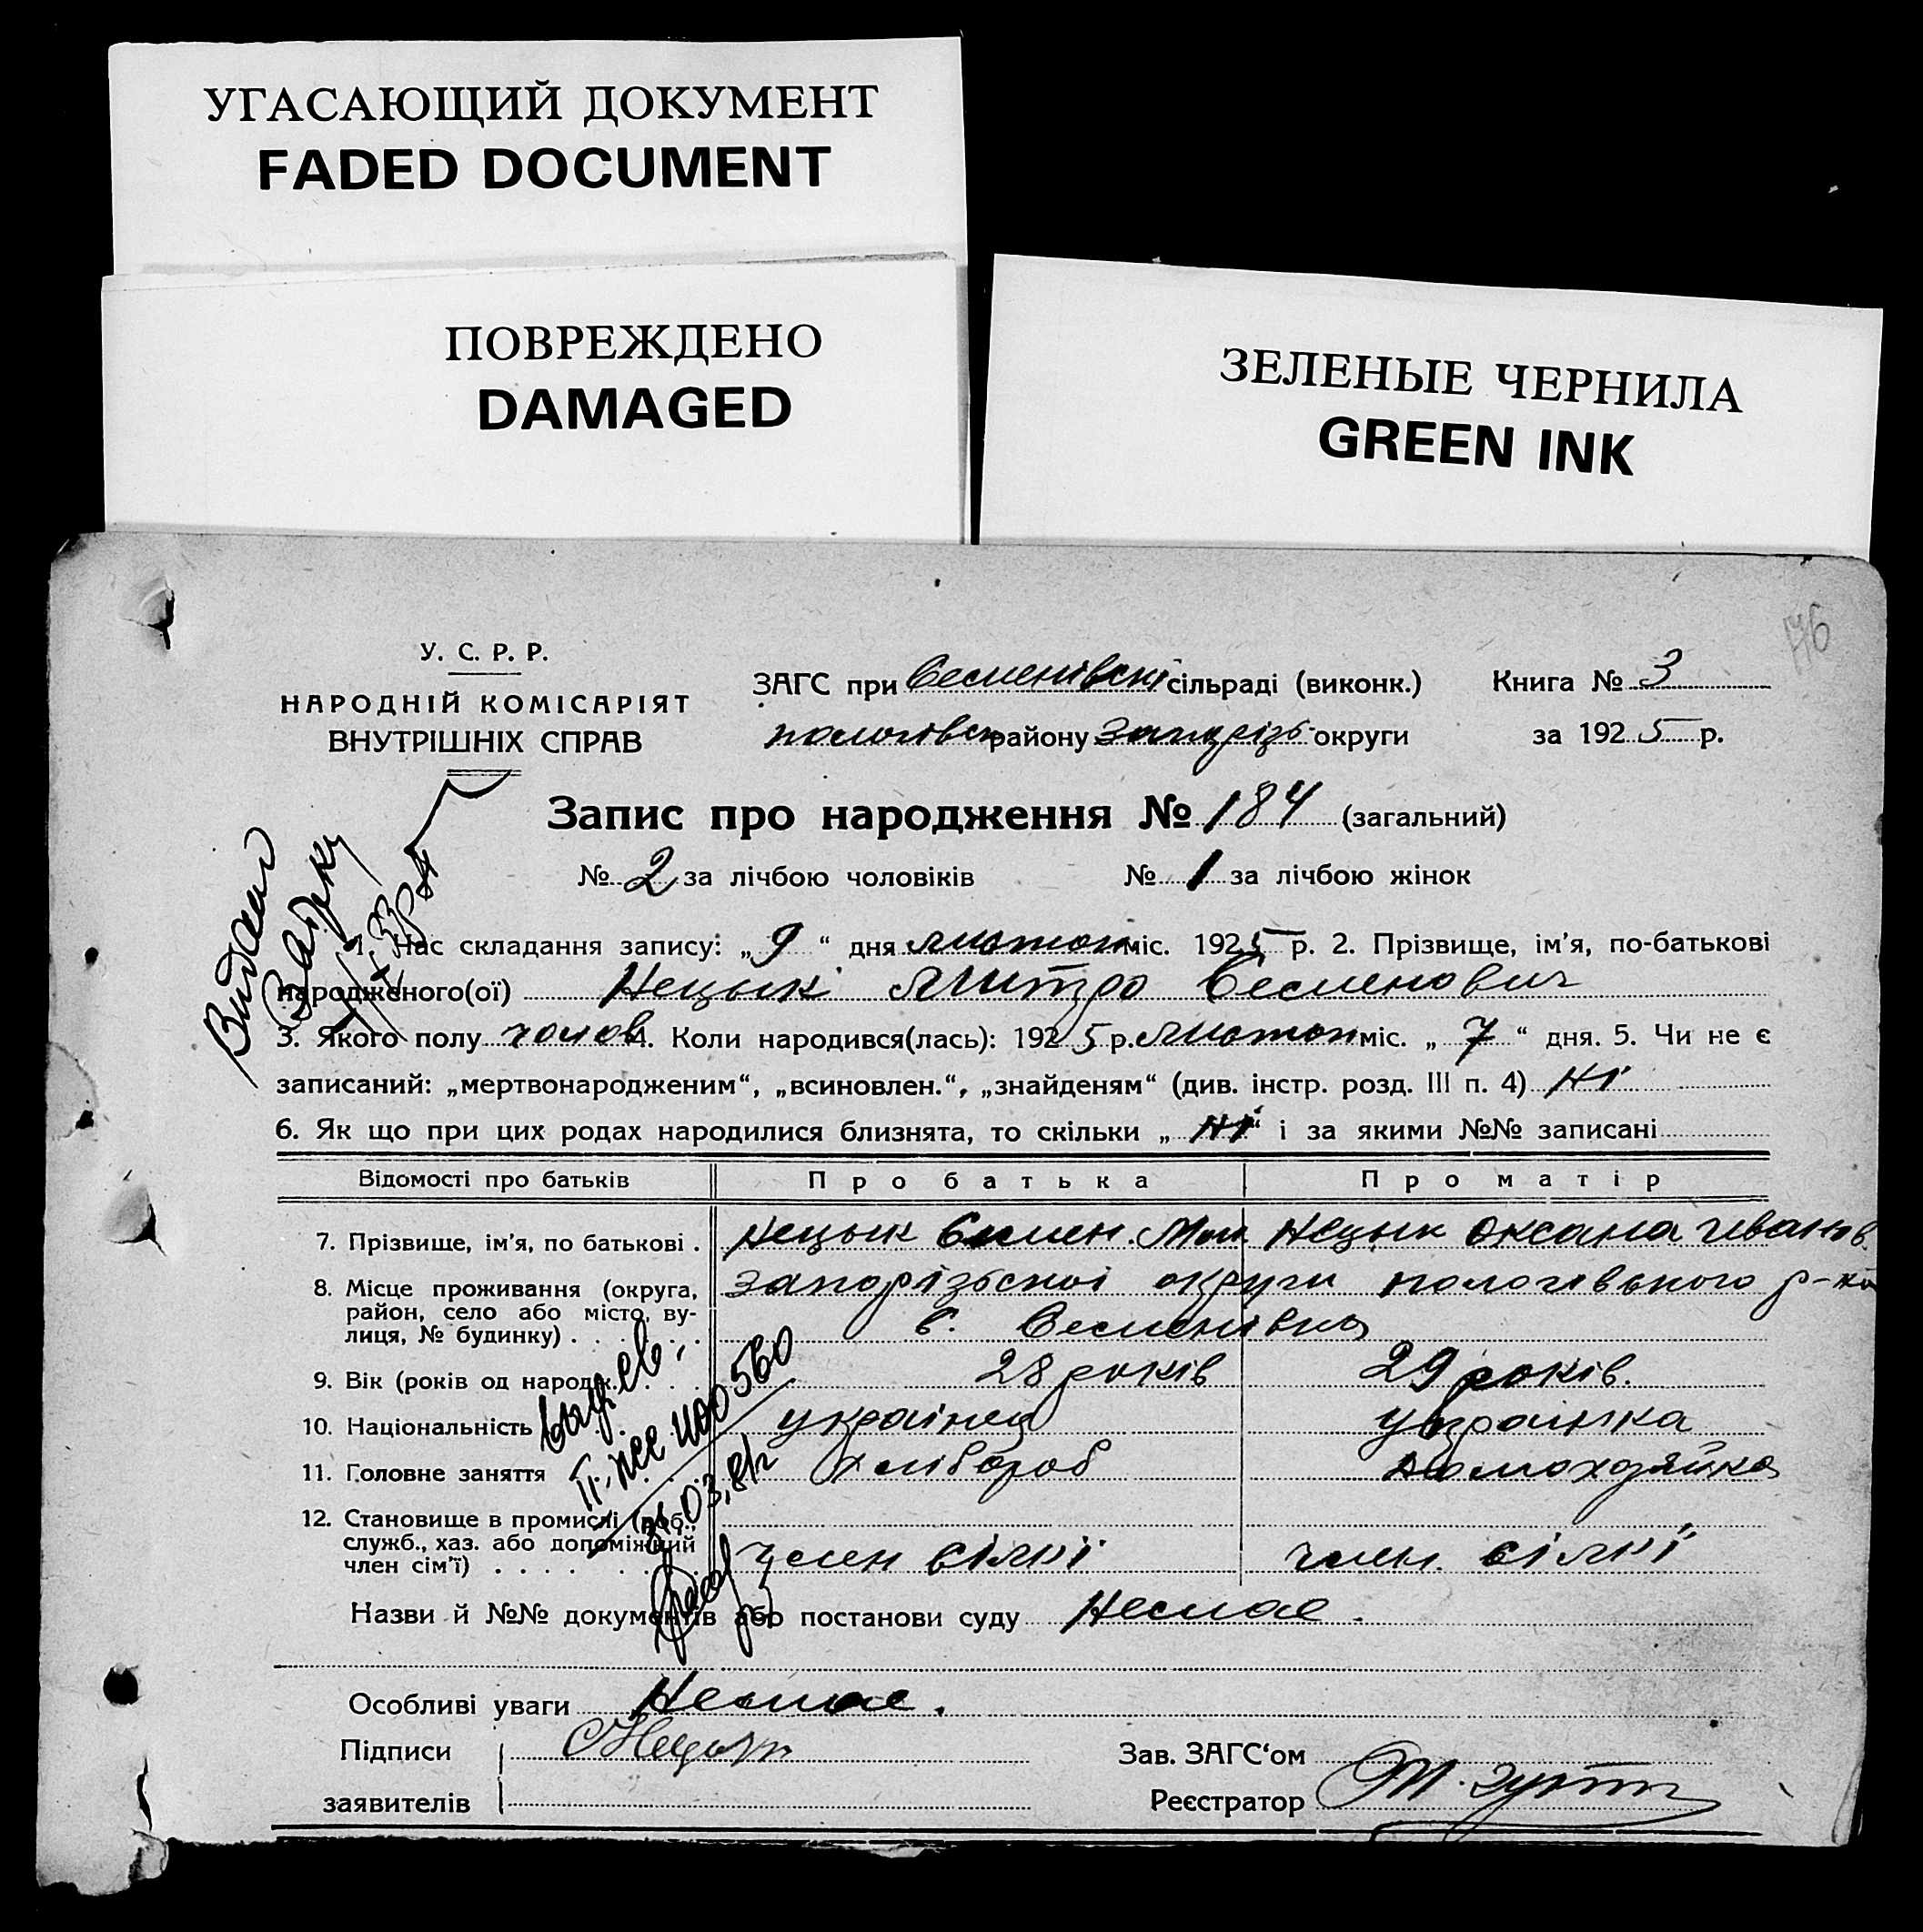 УГАСАЮЩИЙ ДОКУМЕНТ
FADED DOCUMENT
ПОВРЕЖДЕНО
DAMAGED
ЗЕЛЕНЫЕ ЧЕРНИЛА
GREEN INK
176
У. С. Р. Р.
НАРОДНІЙ КОМІСАРІЯТ
ВНУТРІШНІХ СПРАВ
ЗАГС при Семенівскі сільраді (виконк.)
пологівск району Запорізь округи
Книга № 3
за 1925 р.
Запис про народження № 184 (загальний)
№ 2 за лічбою чоловіків № 1 за лічбою жінок
1. Час складання запису: „ 9 “ дня листоп міс. 1925 р. 2. Прізвище, ім’я, по-батькові
народженого(ої) Нецык Митро Семенович
3. Якого полу чолов 4. Коли народився(лась): 1925 р. листоп міс. „ 7 “ дня. 5. Чи не є
записаний: „мертвонародженим“, „всиновлен.“, „знайденям“ (див. інстр. розд. III п. 4) Ні
6. Як що при цих родах народилися близнята, то скільки „ Ні “ і за якими №№ записані
Відомості про батьків Про батька Про матір
7. Прізвище, ім’я, по батькові . Нецык Семен. Нецык Оксана Иванов.
8. Місце проживання (округа, район, село або місто, вулиця, № будинку) . . . . . . . Запорізьскоі округи пологівського р-ну
с. Семенівка
9. Вік (років од народж. . . . 28 років 29 років.
10. Національність українец українка
11. Головне заняття Хлібороб домохазяйка
12. Становище в промислі (роб.,
служб., хаз. або допоміжний
член сім’ї) . . . . член сілкі член. сілкі
Назви й №№ документів або постанови суду Немае.
Особливі уваги Немае.
Підписи СНецык Зав. ЗАГС‘ом
заявителів Реєстратор
Видан